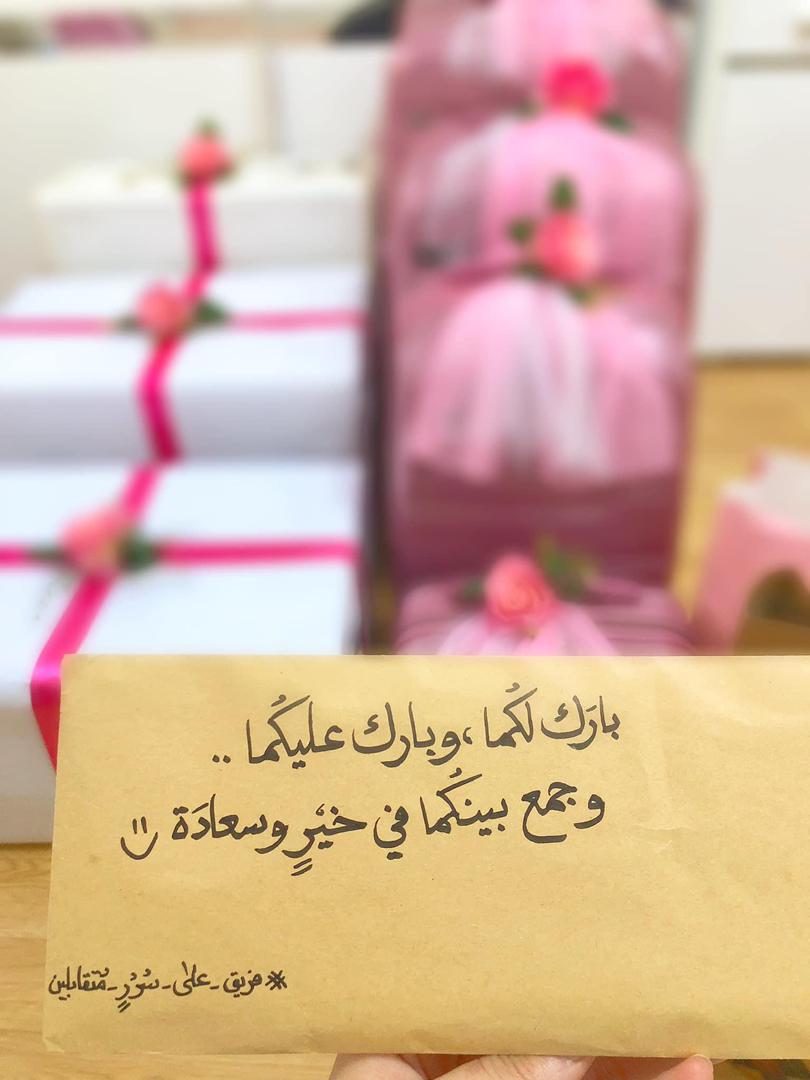 بارَك لكُما ،وبارك عليكُما ..
وجمع بينكُما في خيْرٍ وسعادَة
#فريق_على_سُرُرٍ_مُتقابلين